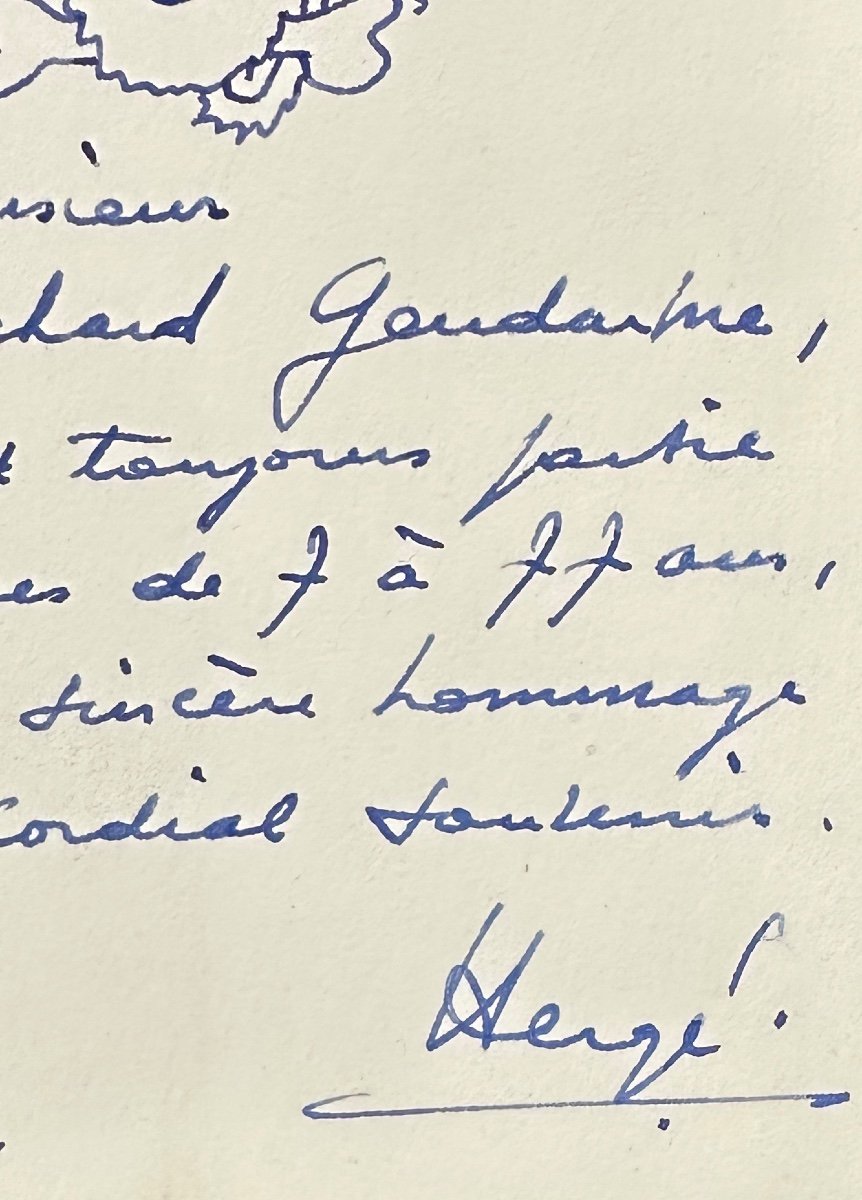 usieur
chard Gendarme,
t toujours partie
es de 7 à 77 ans,
sincère hommage
cordial souvenir.
Hergé.